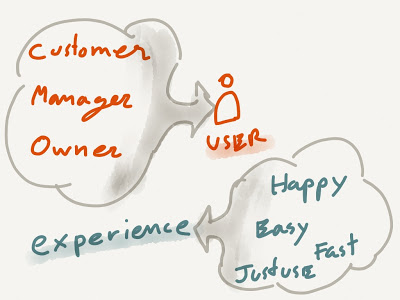 Customer
Manager
Owner
USER
Happy
Easy
Fast
Just use
experience